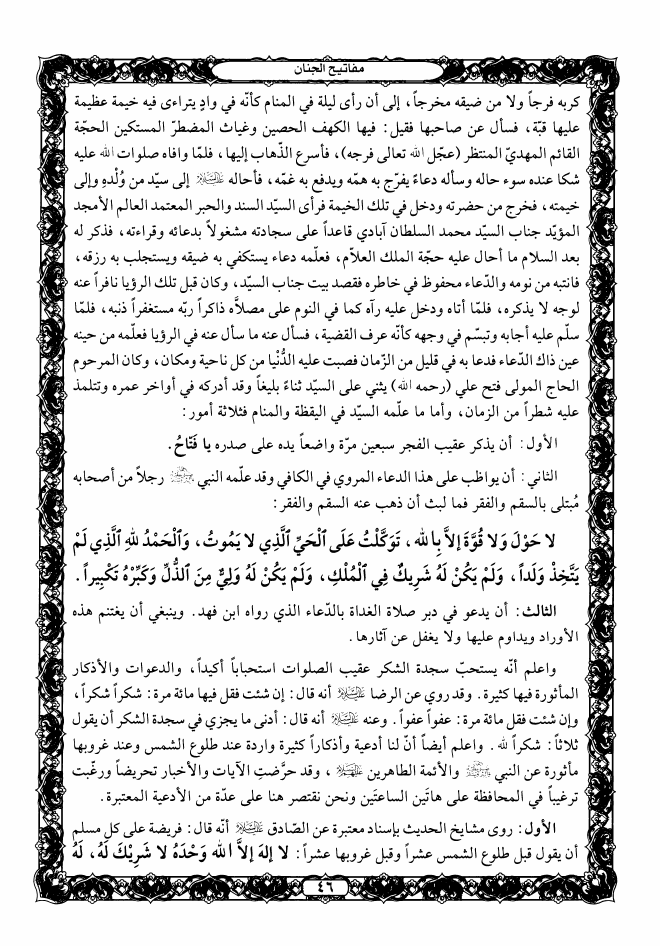 مفاتيح الجنان
كربه فرجاً ولا من ضيقه مخرجاً، إلى أن رأى ليلة في المنام كأنّه في وادٍ يتراءى فيه خيمة عظيمة
عليها قبّة، فسأل عن صاحبها فقيل: فيها الكهف الحصين وغياث المضطرّ المستكين الحجّة
القائم المهديّ المنتظر (عجّل الله تعالى فرجه)، فأسرع الذّهاب إليها، فلمّا وافاه صلوات الله عليه
شكا عنده سوء حاله وسأله دعاءً يفرّج به همّه ويدفع به غمّه، فأحاله عليه السلام إلى سيّد من وُلْدِهِ وإلى
خيمته، فخرج من حضرته ودخل في تلك الخيمة فرأى السيّد السند والحبر المعتمد العالم الأمجد
المؤيّد جناب السيّد محمد السلطان آبادي قاعداً على سجادته مشغولاً بدعائه وقراءته، فذكر له
بعد السلام ما أحال عليه حجّة الملك العلاّم، فعلّمه دعاء يستكفي به ضيقه ويستجلب به رزقه،
فانتبه من نومه والدّعاء محفوظ في خاطره فقصد بيت جناب السيّد، وكان قبل تلك الرؤيا نافراً عنه
لوجه لا يذكره، فلمّا أتاه ودخل عليه رآه كما في النوم على مصلاّه ذاكراً ربّه مستغفراً ذنبه، فلمّا
سلّم عليه أجابه وتبسّم في وجهه كأنّه عرف القضية، فسأل عنه ما سأل عنه في الرؤيا فعلّمه من حينه
عين ذاك الدّعاء فدعا به في قليل من الزّمان فصبت عليه الدُّنْيا من كل ناحية ومكان، وكان المرحوم
الحاج المولى فتح علي (رحمه الله) يثني على السيّد ثناءً بليغاً وقد أدركه في أواخر عمره وتتلمذ
عليه شطراً من الزمان، وأما ما علّمه السيّد في اليقظة والمنام فثلاثة أمور:
الأول: أن يذكر عقيب الفجر سبعين مرّة واضعاً يده على صدره يا فَتّاحُ.
الثاني: أن يواظب على هذا الدعاء المروي في الكافي وقد علّمه النبي ﷺ رجلاً من أصحابه
مُبتلى بالسقم والفقر فما لبث أن ذهب عنه السقم والفقر:
لا حَوْلَ وَلا قُوَّةَ إلاَّ بِالله، تَوَكَّلْتُ عَلَى ٱلْحَيِّ ٱلَّذِي لا يَمُوتُ، وَٱلْحَمْدُ للهِ ٱلَّذِي لَمْ
يَتَّخِذْ وَلَداً، وَلَمْ يَكُنْ لَهُ شَرِيكٌ فِي ٱلْمُلْكِ، وَلَمْ يَكُنْ لَهُ وَلِيٌّ مِنَ ٱلذُّلِّ وَكَبِّرْهُ تَكْبِيراً.
الثالث: أن يدعو في دبر صلاة الغداة بالدّعاء الذي رواه ابن فهد. وينبغي أن يغتنم هذه
الأوراد ويداوم عليها ولا يغفل عن آثارها.
واعلم أنّه يستحبّ سجدة الشكر عقيب الصلوات استحباباً أكيداً، والدعوات والأذكار
المأثورة فيها كثيرة. وقد روي عن الرضا عليه السلام أنه قال: إن شئت فقل فيها مائة مرة: شكراً شكراً،
وإن شئت فقل مائة مرة: عفواً عفواً. وعنه عليه السلام أنه قال: أدنى ما يجزي في سجدة الشكر أن يقول
ثلاثاً: شكراً لله. واعلم أيضاً أنّ لنا أدعية وأذكاراً كثيرة واردة عند طلوع الشمس وعند غروبها
مأثورة عن النبي ﷺ والأئمة الطاهرين عليهم السلام، وقد حرَّضتِ الآيات والأخبار تحريضاً ورغّبت
ترغيباً في المحافظة على هاتَين الساعتَين ونحن نقتصر هنا على عدّة من الأدعية المعتبرة.
الأول: روى مشايخ الحديث بإسناد معتبرة عن الصّادق عليه السلام أنّه قال: فريضة على كل مسلم
أن يقول قبل طلوع الشمس عشراً وقبل غروبها عشراً: لا إلهَ إلاَّ الله وَحْدَهُ لا شَرِيْكَ لَهُ، لَهُ
٤٦